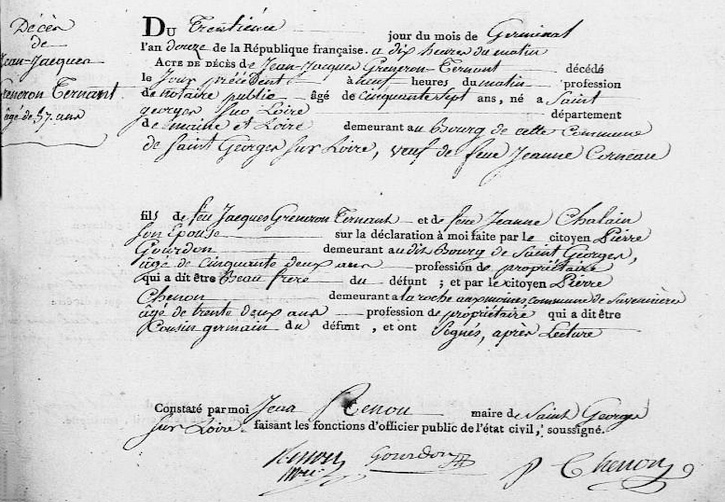 Décès
de
Jean-Jacques
Greneron Ternant
âgé de 57 ans
DU Trentième jour du mois de Germinal
l'an douze de la République française. a dix heures du matin
ACTE DE DÉCÈS de Jean-Jacques Greneron-Ternant décédé
le Jour précédent à neuf heures du matin profession
de notaire public âgé de cinquante sept ans, né a Saint
georges sur Loire département
de maine et Loire demeurant au Bourg de cette Commune
de Saint Georges sur Loire, veuf de feue Jeanne
fils de feu Jacques Greneron Ternant et de feue Jeanne Chalain
son Epouse sur la déclaration à moi faite par le citoyen Pierre
Gourdon demeurant au dit Bourg de Saint Georges,
âgé de cinquante deux ans profession de propriétaire
qui a dit être Beau frere du défunt ; et par le citoyen Pierre
Chenon demeurant a la roche aux moines, commune de Savennières
âgé de trente deux ans profession de propriétaire qui a dit être
Cousin germain du défunt , et ont Signés, après Lecture
Constaté par moi Jean Renou maire de Saint George
sur Loire faisant les fonctions d'officier public de l'état civil, soussigné.
Renou Gourdon P Chenon